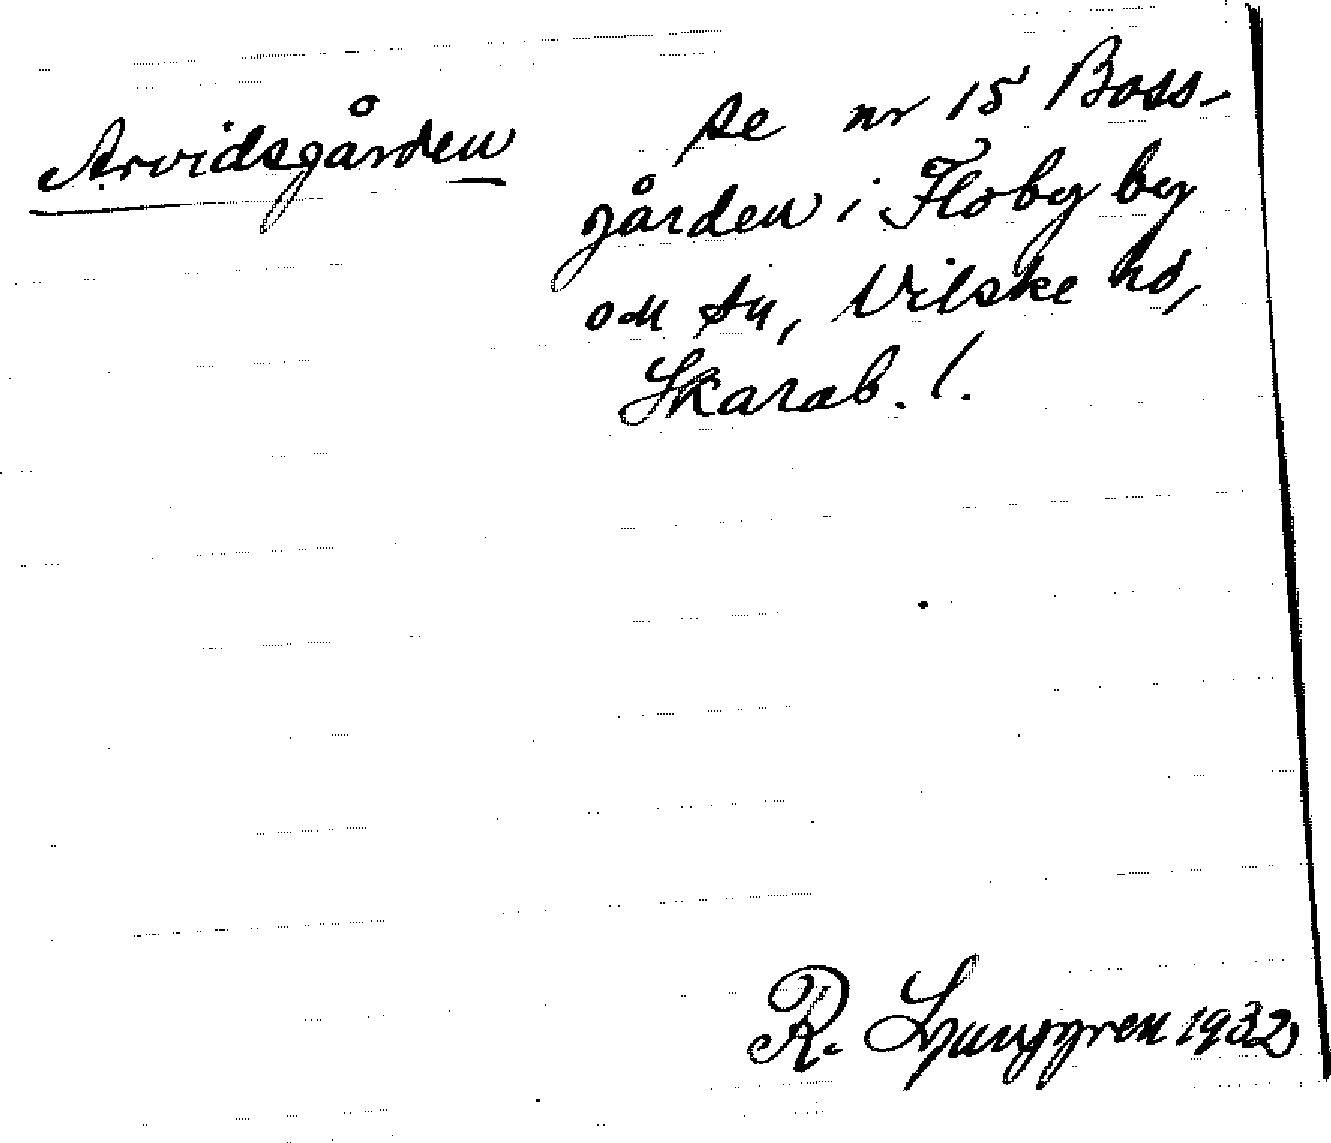 Arvidsgården se nr 15 Boss-
gården i Floby by
och sn, Vilske hd,
Skarab. l.
R. Ljunggren 1932